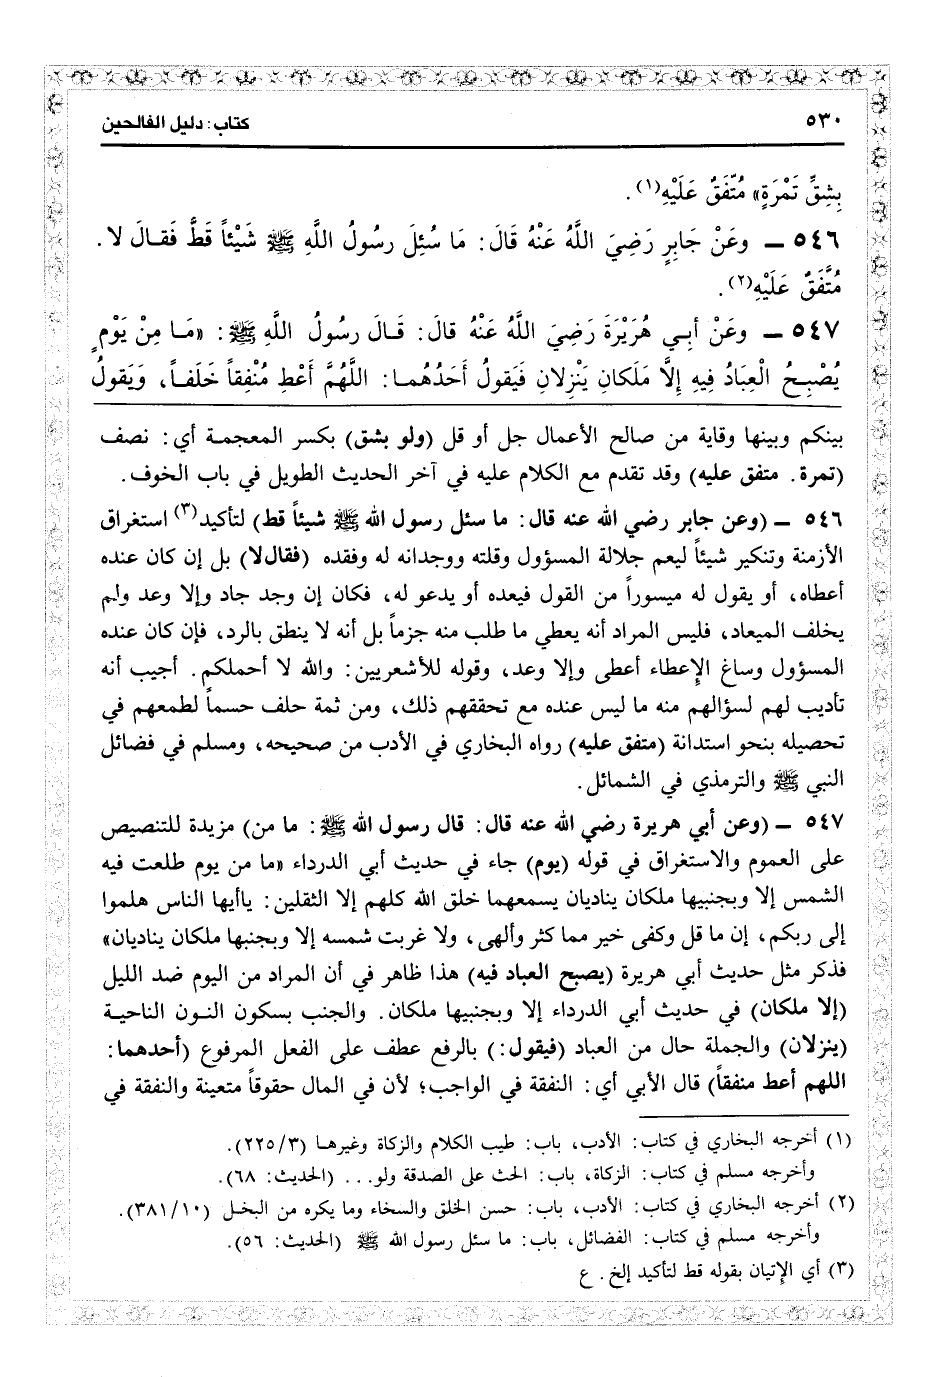 ٥٣٠ كتاب: دليل الفالحين
بِشِقِّ تَمْرَةٍ» مُتَّفَقٌ عَلَيْهِ(١).
٥٤٦ ــ وعَنْ جَابِرٍ رَضِيَ اللَّهُ عَنْهُ قَالَ: مَا سُئِلَ رسُولُ اللَّهِ ﷺ شَيْئاً قَطُّ فَقالَ لا.
مُتَّفَقٌ عَلَيْهِ(٢).
٥٤٧ ــ وعَنْ أبِي هُرَيْرَةَ رَضِيَ اللَّهُ عَنْهُ قالَ: قَالَ رسُولُ اللَّهِ ﷺ: «مَا مِنْ يَوْمٍ
يُصْبِحُ الْعِبَادُ فِيهِ إِلاَّ مَلَكانِ يَنْزِلانِ فَيَقولُ أَحَدُهُما: اللَّهُمَّ أَعْطِ مُنْفِقاً خَلَفاً، وَيَقولُ
بينكم وبينها وقاية من صالح الأعمال جل أو قل (ولو بشق) بكسر المعجمة أي: نصف
(تمرة. متفق عليه) وقد تقدم مع الكلام عليه في آخر الحديث الطويل في باب الخوف.
٥٤٦ ــ (وعن جابر رضي الله عنه قال: ما سئل رسول الله ﷺ شيئاً قط) لتأكيد(٣) استغراق
الأزمنة وتنكير شيئاً ليعم جلالة المسؤول وقلته ووجدانه له وفقده (فقال‌لا) بل إن كان عنده
أعطاه، أو يقول له ميسوراً من القول فيعده أو يدعو له، فكان إن وجد جاد وإلا وعد ولم
يخلف الميعاد، فليس المراد أنه يعطي ما طلب منه جزماً بل أنه لا ينطق بالرد، فإن كان عنده
المسؤول وساغ الإعطاء أعطى وإلا وعد، وقوله للأشعريين: والله لا أحملكم. أجيب أنه
تأديب لهم لسؤالهم منه ما ليس عنده مع تحققهم ذلك، ومن ثمة حلف حسماً لطمعهم في
تحصيله بنحو استدانة (متفق عليه) رواه البخاري في الأدب من صحيحه، ومسلم في فضائل
النبي ﷺ والترمذي في الشمائل.
٥٤٧ ــ (وعن أبي هريرة رضي الله عنه قال: قال رسول الله ﷺ: ما من) مزيدة للتنصيص
على العموم والاستغراق في قوله (يوم) جاء في حديث أبي الدرداء «ما من يوم طلعت فيه
الشمس إلا وبجنبيها ملكان يناديان يسمعهما خلق الله كلهم إلا الثقلين: ياأيها الناس هلموا
إلى ربكم، إن ما قل وكفى خير مما كثر وألهى، ولا غربت شمسه إلا وبجنبها ملكان يناديان»
فذكر مثل حديث أبي هريرة (يصبح العباد فيه) هذا ظاهر في أن المراد من اليوم ضد الليل
(إلا ملكان) في حديث أبي الدرداء إلا وبجنبيها ملكان. والجنب بسكون النون الناحية
(ينزلان) والجملة حال من العباد (فيقول:) بالرفع عطف على الفعل المرفوع (أحدهما:
اللهم أعط منفقاً) قال الأبي أي: النفقة في الواجب؛ لأن في المال حقوقاً متعينة والنفقة في
(١) أخرجه البخاري في كتاب: الأدب، باب: طيب الكلام والزكاة وغيرها (٢٢٥/٣).
وأخرجه مسلم في كتاب: الزكاة، باب: الحث على الصدقة ولو... (الحديث: ٦٨).
(٢) أخرجه البخاري في كتاب: الأدب، باب: حسن الخلق والسخاء وما يكره من البخل (٣٨١/١٠).
وأخرجه مسلم في كتاب: الفضائل، باب: ما سئل رسول الله ﷺ (الحديث: ٥٦).
(٣) أي الإتيان بقوله قط لتأكيد إلخ. ع